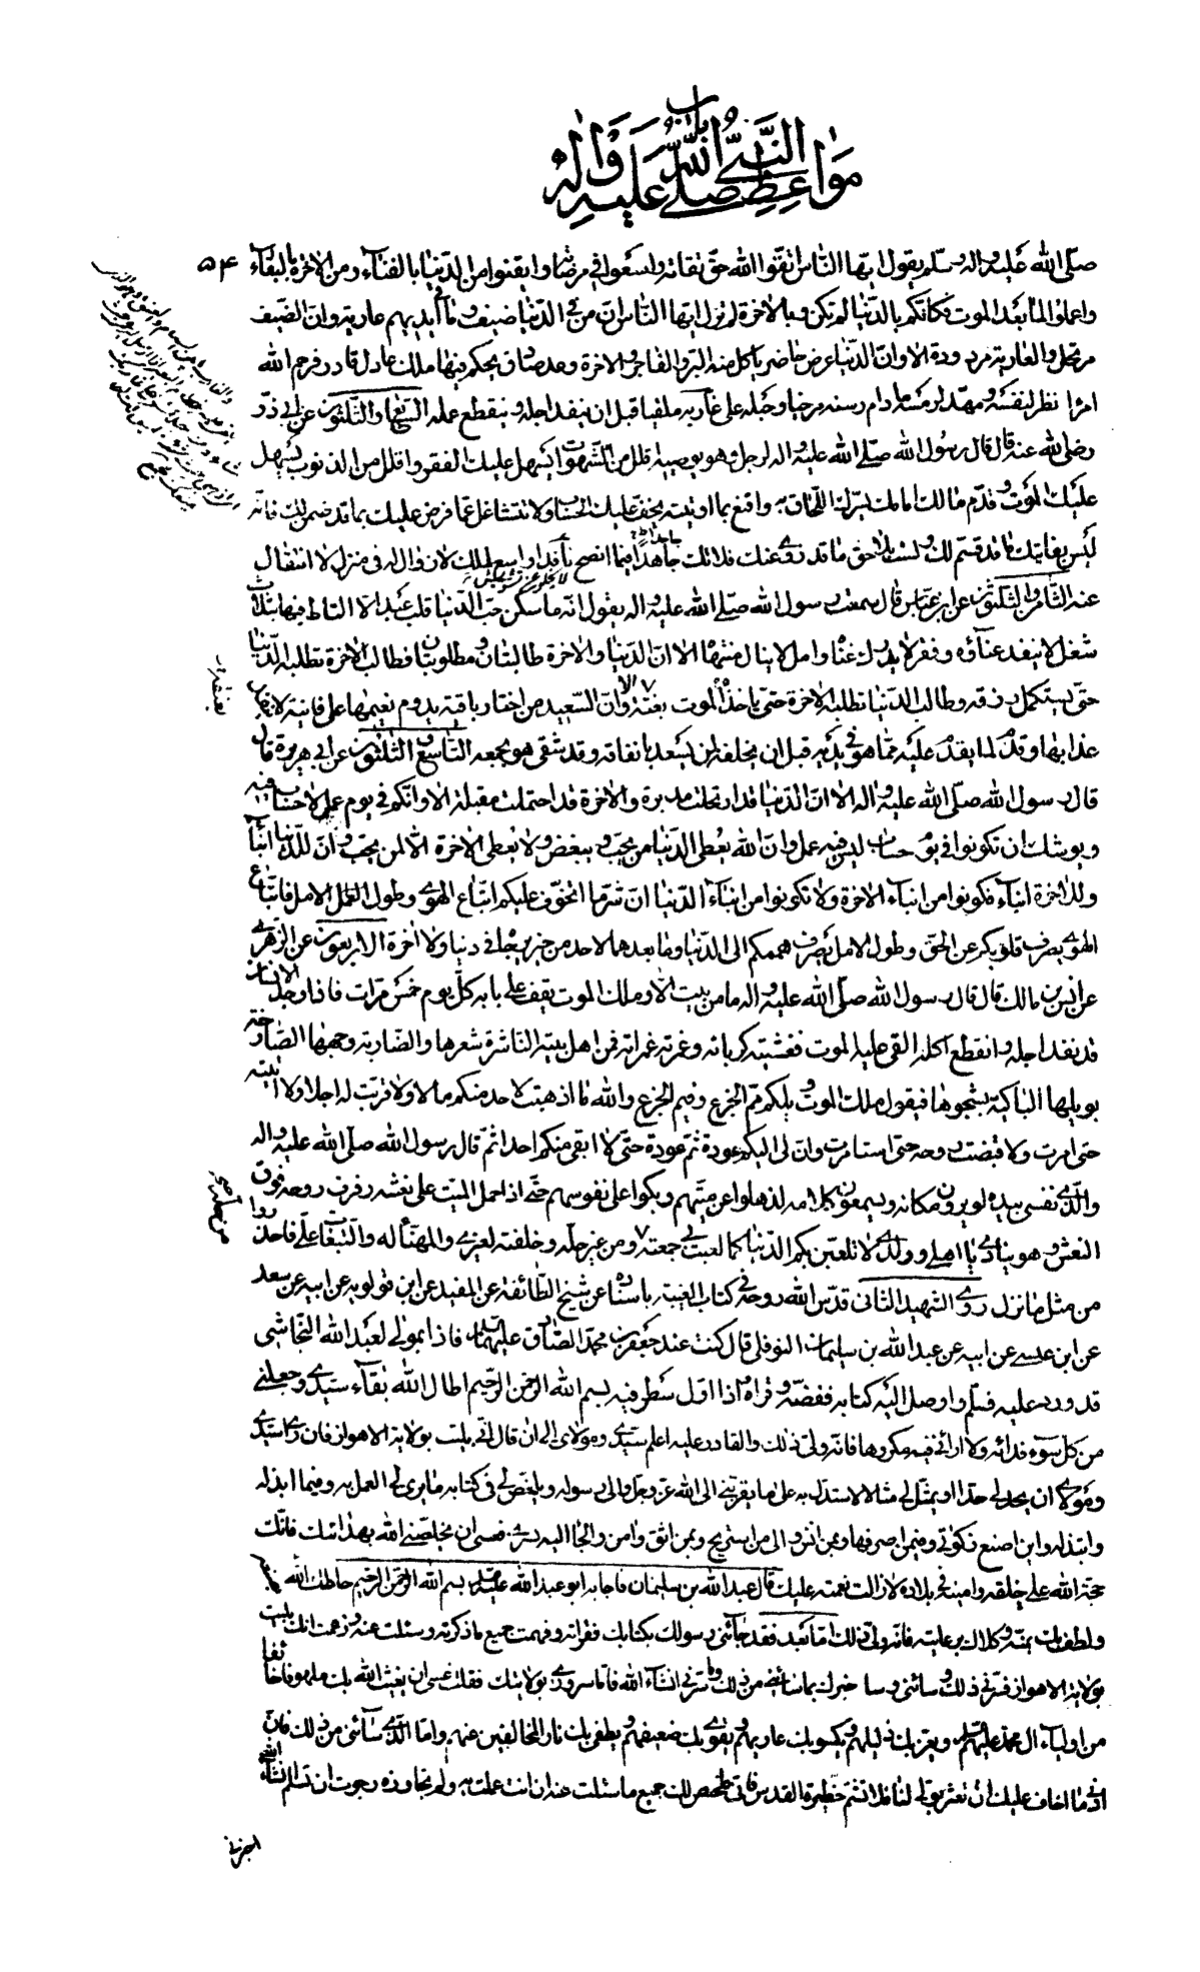 باب
مواعظ النبي صلى الله عليه واله
۵۴
صلّى الله عليه واله وسلّم يقول ايّها النّاس اتقوا الله حقّ تقاته واسعوا في مرضاته وايقنوا من الدّنيا بالفناء ومن الاخرة بالبقاء
واعملوا لما بعد الموت فكانّكم بالدّنيا لم تكن وبالاخرة لم تزل ايّها النّاس انّ من في الدّنيا ضيف وما في ايديهم عارية وانّ الضّيف
مرتحل والعارية مردودة الا وانّ الدّنيا عرض حاضر ياكل منه البرّ والفاجر والاخرة وعد صادق يحكم فيها ملك عادل قادر فرحم الله
امرأ نظر لنفسه ومهّد لرمسه مادام رسنه مرخيا وحبله على غاربه ملقيا قبل ان ينفد اجله وينقطع عمله السّابع والثّلثون عن ابي ذرّ
رضي الله عنه قال قال رسول الله صلّى الله عليه واله لرجل وهو يوصيه اقلل من الشّهوات يسهل عليك الفقر واقلل من الذنوب يسهل
عليك الموت وقدّم مالك امامك يسرّك اللّحاق به واقنع بما اوتيته يخفّ عليك الحساب ولا تتشاغل عمّا فرض عليك بما قد ضمن لك فانّه
ليس بفائتك ما قد قسم لك ولست بلاحق ما قد زوى عنك فلا تك جاهدا فيما انصح نافدا واسع لملك لا زوال له في منزل لا انتقال
عنه الثّامن والثّلثون عن ابن عبّاس قال سمعت رسول الله صلّى الله عليه واله يقول انّه ما سكن حبّ الدّنيا قلب عبد الا التاط فيها بثلاث
شغل لا ينفد عناؤه وفقر لا يدرك غناه وامل لا ينال منتهاه الا انّ الدّنيا والاخرة طالبتان ومطلوبتان فطالب الاخرة تطلبه الدّنيا
حتى يستكمل رزقه وطالب الدّنيا تطلبه الاخرة حتى ياخذه الموت بغتة الا وانّ السّعيد من اختار باقية يدوم نعيمها على فانية لا ينفد
عذابها وقدّم لما يقدم عليه ممّا هو في يديه قبل ان يخلفه لمن يسعد بانفاقه وقد شقي هو بجمعه التّاسع والثّلثون عن ابي هريرة قال
قال رسول الله صلّى الله عليه واله الا انّ الدّنيا قد ارتحلت مدبرة والاخرة قد احتملت مقبلة الا وانّكم في يوم عمل لا حساب فيه
ويوشك ان تكونوا في يوم حساب ليس فيه عمل وانّ الله يعطي الدّنيا من يحبّ ويبغض ولا يعطي الاخرة الّا لمن يحبّ وانّ للدّنيا ابناء
وللاخرة ابناء فكونوا من ابناء الاخرة ولا تكونوا من ابناء الدّنيا انّ شرّ ما اتخوّف عليكم اتّباع الهوى وطول الامل فاتّباع
الهوى يصرف قلوبكم عن الحقّ وطول الامل يصرف هممكم الى الدّنيا وما بعدهما لاحد من خير يرجاه في دنيا ولا اخرة الاربعون عن الزهري
عن انس بن مالك قال قال رسول الله صلّى الله عليه واله ما من بيت الا وملك الموت يقف على بابه كلّ يوم خمس مرّات فاذا وجد الانسان
قد نفد اجله وانقطع اكله القى عليه الموت فغشيته كرباته وغمرته غمراته فمن اهل بيته الناشرة شعرها والضّاربة وجهها الصّارخة
بويلها الباكية بشجوها فيقول ملك الموت ويلكم ممّ الجزع وفيم الجزع والله ما اذهبت لاحد منكم مالا ولا قرّبت له اجلا ولا اتيته
حتى امرت ولا قبضت روحه حتى استامرت وانّ لي اليكم عودة ثم عودة حتى لا ابقي منكم احدا ثمّ قال رسول الله صلّى الله عليه واله
والّذي نفسي بيده لو يرون مكانه ويسمعون كلامه لذهلوا عن ميّتهم وبكوا على نفوسهم حتى اذا حمل الميّت على نعشه رفرف روحه فوق
النعش وهو ينادي يا اهلي وولدي لا تلعبنّ بكم الدّنيا كما لعبت بي جمعته من حلّه ومن غير حلّه وخلفته لغيري والمهنأ له والتّبعات عليّ فاحذروا
من مثل ما نزل بي روى الشهيد الثاني قدّس الله روحه في كتاب الغيبة باسناده عن شيخ الطّائفة عن المفيد عن ابن قولويه عن ابيه عن سعد
عن ابن عيسى عن ابيه عن عبد الله بن سليمان النوفلي قال كنت عند جعفر بن محمّد الصّادق عليهما السلام فاذا بمولى لعبد الله النّجاشي
قد ورد عليه فسلّم واوصل اليه كتابه ففضّه وقراه اذا اوّل سطر فيه بسم الله الرّحمن الرّحيم اطال الله بقاء سيّدي وجعلني
من كلّ سوء فدائه ولا اراني فيه مكروها فانّه وليّ ذلك والقادر عليه اعلم سيّدي ومولاي الى ان قال انّي بليت بولاية الاهواز فان راى سيّدي
ومولاي ان يحدّ لي حدّا او يمثّل لي مثالا لاستدلّ به على ما يقرّبني الى الله عزّوجلّ والى رسوله ويلخّص لي في كتابه ما يرى لي العمل به وفيما ابذله
وابتذله واين اضع زكوتي وفيمن اصرفها وبمن انس والى من استريح وبمن اثق وامن والجأ اليه في سرّي فعسى ان يخلّصني الله بهدايتك فانّك
حجّة الله على خلقه وامينه في بلاده لا زالت نعمته عليك قال عبد الله بن سليمان فاجابه ابو عبد الله عليه السلام بسم الله الرّحمن الرّحيم حاطك الله
ولطف بك بمنّه وكلاك برعايته فانّه وليّ ذلك امّا بعد فقد جائني رسولك بكتابك فقراته وفهمت جميع ما ذكرته وسئلت عنه وزعمت انك بليت
بولاية الاهواز فسرّني ذلك وسائني وساخبرك بما سائني من ذلك وما سرّني انشاء الله فامّا سروري بولايتك فقلت عسى ان يغيث الله بك ملهوفا خائفا
من اولياء ال محمد عليهم السلام ويعزّ بك ذليلهم ويكسو بك عاريهم ويقوي بك ضعيفهم ويطفي بك نار المخالفين عنهم وامّا الّذي سائني من ذلك فانّ
ادنى ما اخاف عليك ان تعثر بوليّ لنا فلا تشمّ حظيرة القدس فانّي ملخّص لك جميع ما سئلت عنه ان انت عملت به ولم تجاوزه رجوت ان تسلم انشاء الله
اخبرني